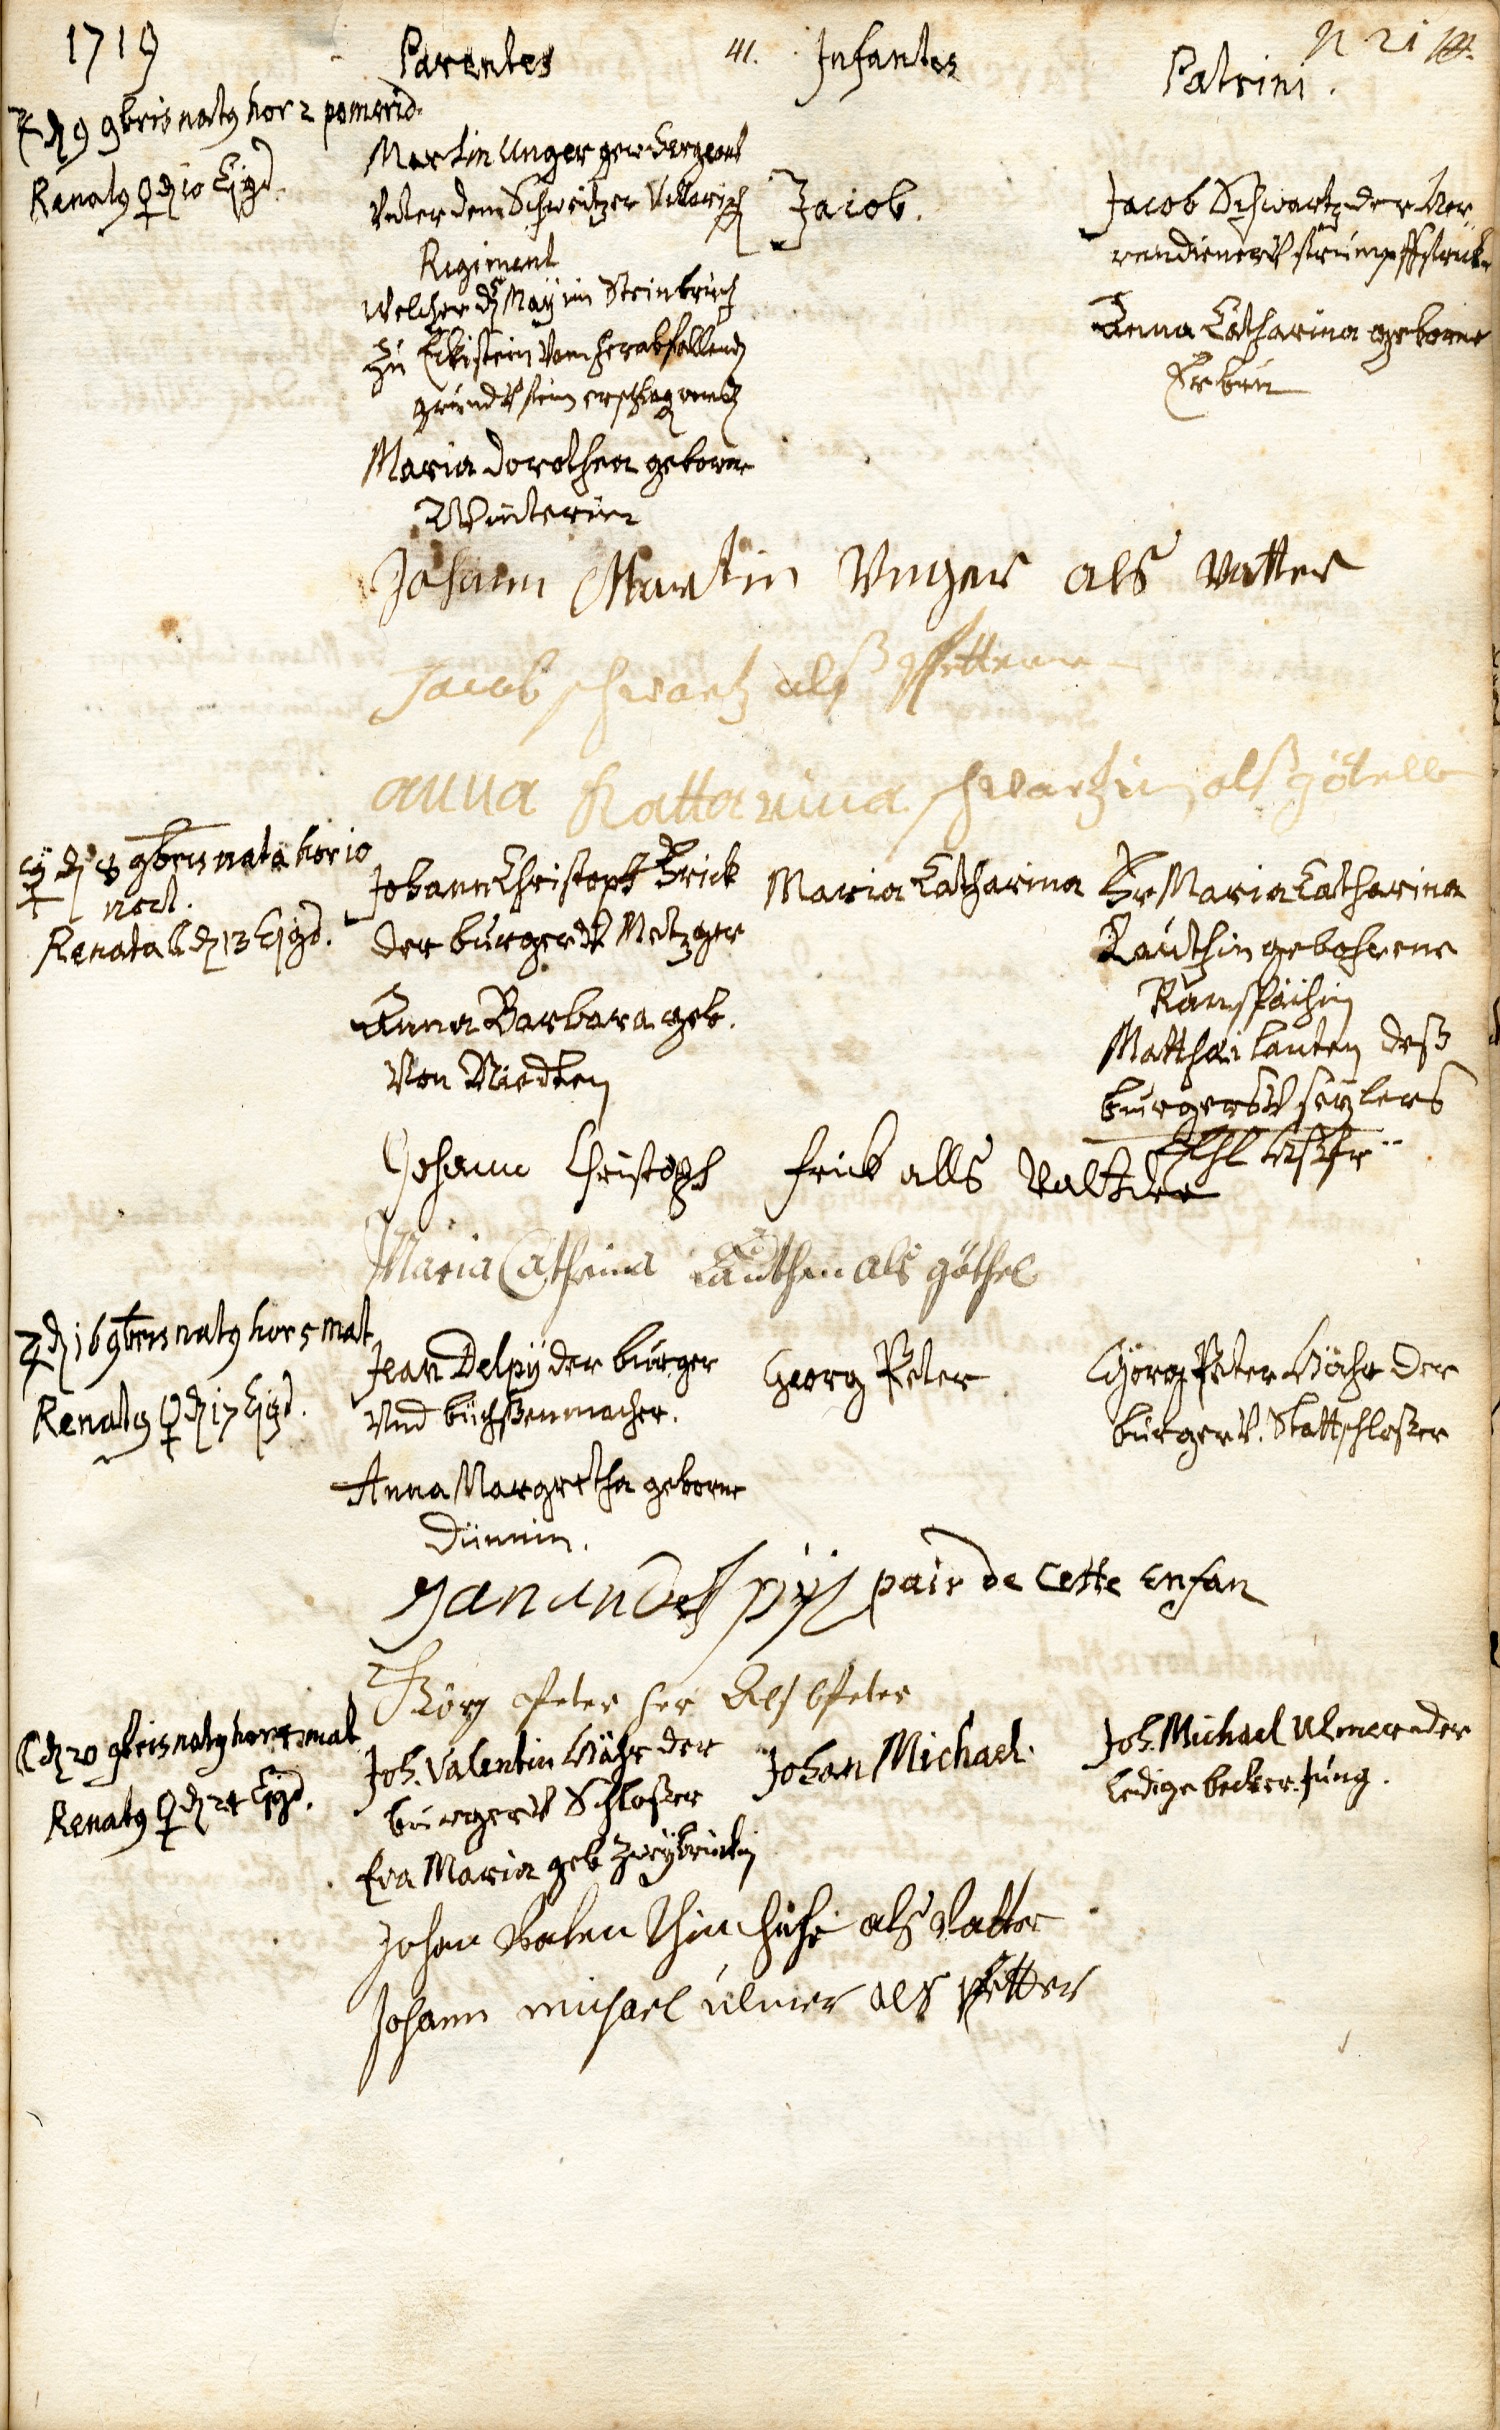 1719
Parentes
41.
Infantes
Patrini.
N 21
d 9 9bris natg hor 2 pomerid.
Renatg ♀ d 10 Ejgd.
Martin Unger gew Sergeant
Unter dem Schweitzer
Regiment
Welcher d May im Steinbruch
zu Eckistein Vom herabfallend
grund V stein erschlag word
Maria Dorothea geborne
Winterin
Jacob.
Jacob Schwartz der
strümpffstrick
Anna Catharina geborne
Erbin
Johann Martin Unger als Vatter
Jacob schwartz alß pfetter
anna Kattarina schwartzin alß götell
d 8 9bris nata hor 10
noct.
Renata d 13 Ejgd.
Johann Christoph Frick
der burger V Metzger
Anna Barbara geb.
Von Riedten
Maria Catharina
Fr Maria Catharina
Lauthin gebohrene
Matthäi Lauten deß
burgers V seylers
Ehl haußfr
Johann Christoph frick alls Vatter
Maria Catharina Lauthin als göthel
d 16 9bris natg hor 5 mat
Renatg ♀ d 17 Ejgd.
Jean Delpÿ der burger
Und büchßenmacher.
Anna Margretha geborne
Dünnin.
Georg Peter
Georg Peter Hähr der
burger V. Stattschloßer
pair de Cette Enfan
Görg Peter her Als Pfeter
☾ d 20 9bris natg hor 4 mat
Renatg ♀ d 24 Ejgd.
Joh. Valentin Hähr der
burger V Schloßer
Eva Maria geb Zweÿbrückin
Johan Michael.
Joh. Michael Ulmer der
Ledige becker. jung.
Johan Valen thin als Vatter
Johann michael ulmer als Pfetter